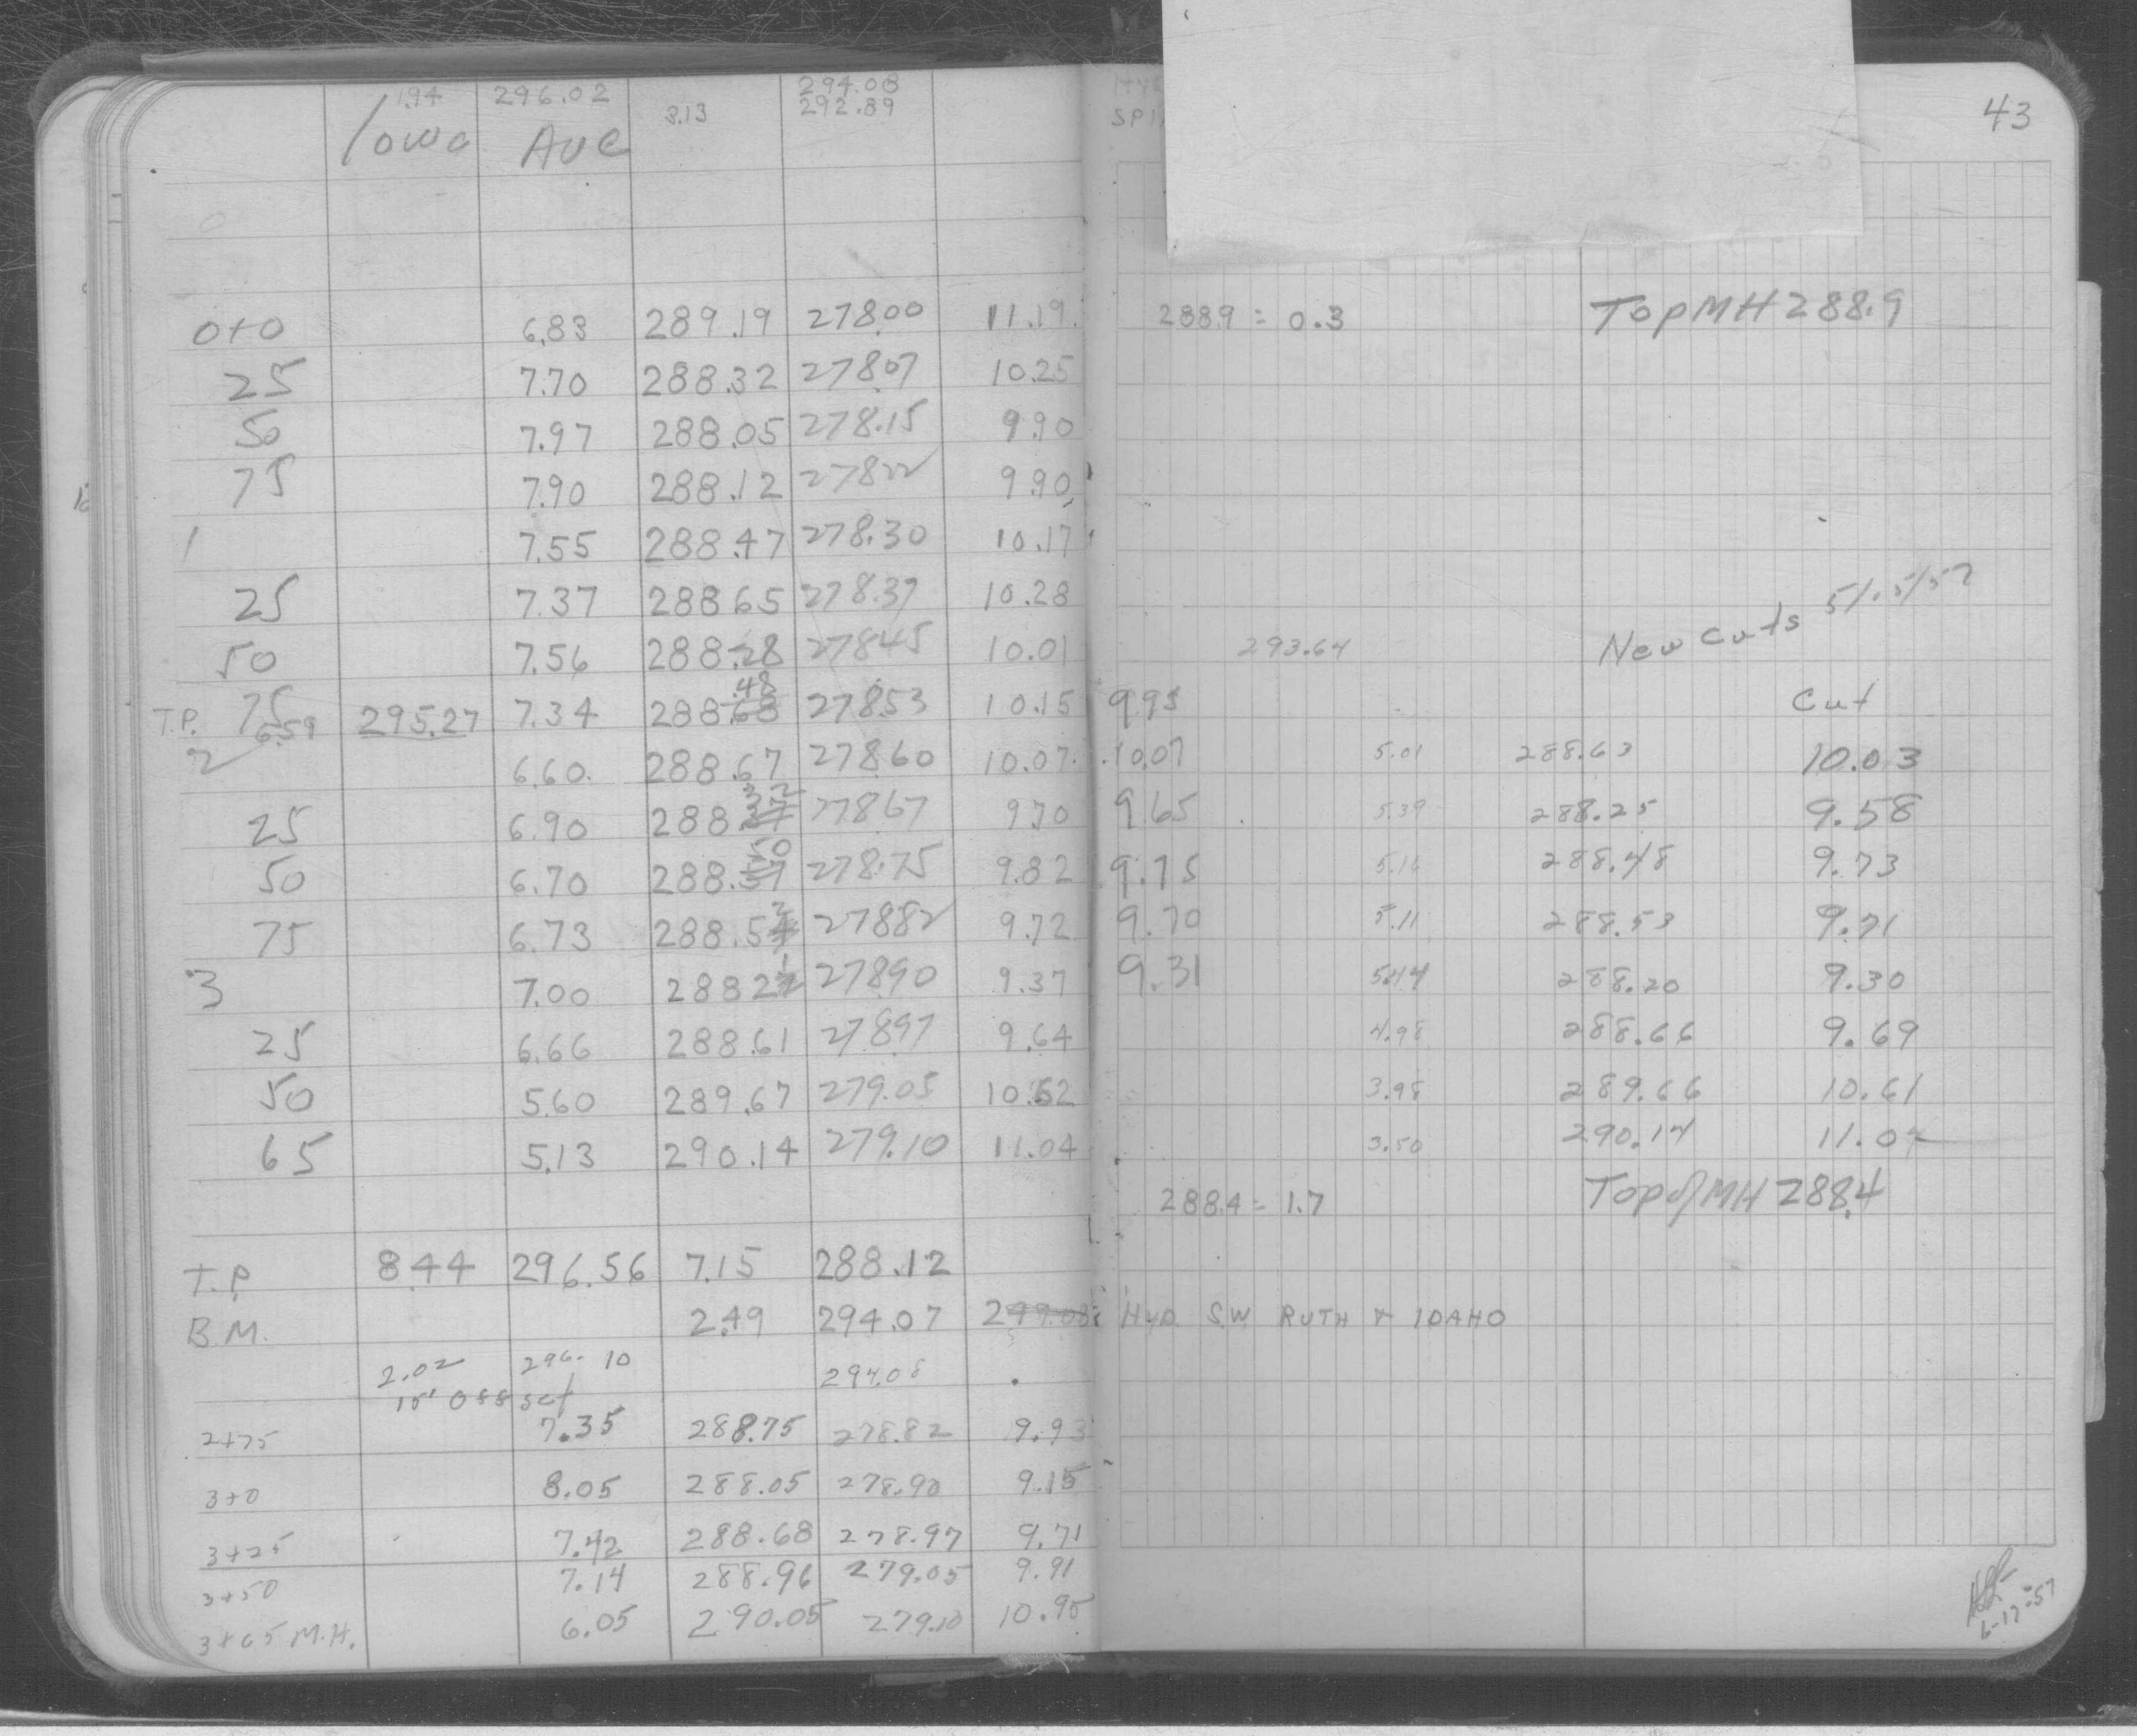 1.94 296.02 294.08
3.13 292.89
Iowa Ave
43
0
0+0 6.83 289.19 278.00 11.19 288.9 = 0.3 Top MH 288.9
25 7.70 288.32 278.07 10.25
50 7.97 288.05 278.15 9.90
75 7.90 288.12 278.22 9.90
1 7.55 288.47 278.30 10.17
25 7.37 288.65 278.37 10.28
50 7.56 288.28 278.45 10.01 293.64 New Cuts
.48 Cut
T.P. 75 6.59 295.27 7.34 288.68 278.53 10.15 9.95
2 6.60 288.67 278.60 10.07 10.07 5.01 288.63 10.03
32
25 6.90 288.37 278.67 9.70 9.65 5.39 288.25 9.58
50
50 6.70 288.57 278.75 9.82 9.75 5.16 288.48 9.73
2
75 6.73 288.54 278.82 9.72 9.70 5.11 288.53 9.71
1
3 7.00 288.27 278.90 9.37 9.31 5.44 288.20 9.30
25 6.66 288.61 278.97 9.64 4.98 288.66 9.69
50 5.60 289.67 279.05 10.62 3.98 289.66 10.61
65 5.13 290.14 279.10 11.04 3.50 290.14 11.04
288.4 = 1.7 Top of MH 288.4
T.P. 8.44 296.56 7.15 288.12
B.M. 2.49 294.07 294.08 HYD. SW RUTH & IDAHO
2.02 296.10 294.08
10' Offset
2+75 7.35 288.75 278.82 9.93
3+0 8.05 288.05 278.90 9.15
3+25 7.42 288.68 278.97 9.71
3+50 7.14 288.96 279.05 9.91
3+65 M.H. 6.05 290.05 279.10 10.95
6-17-57